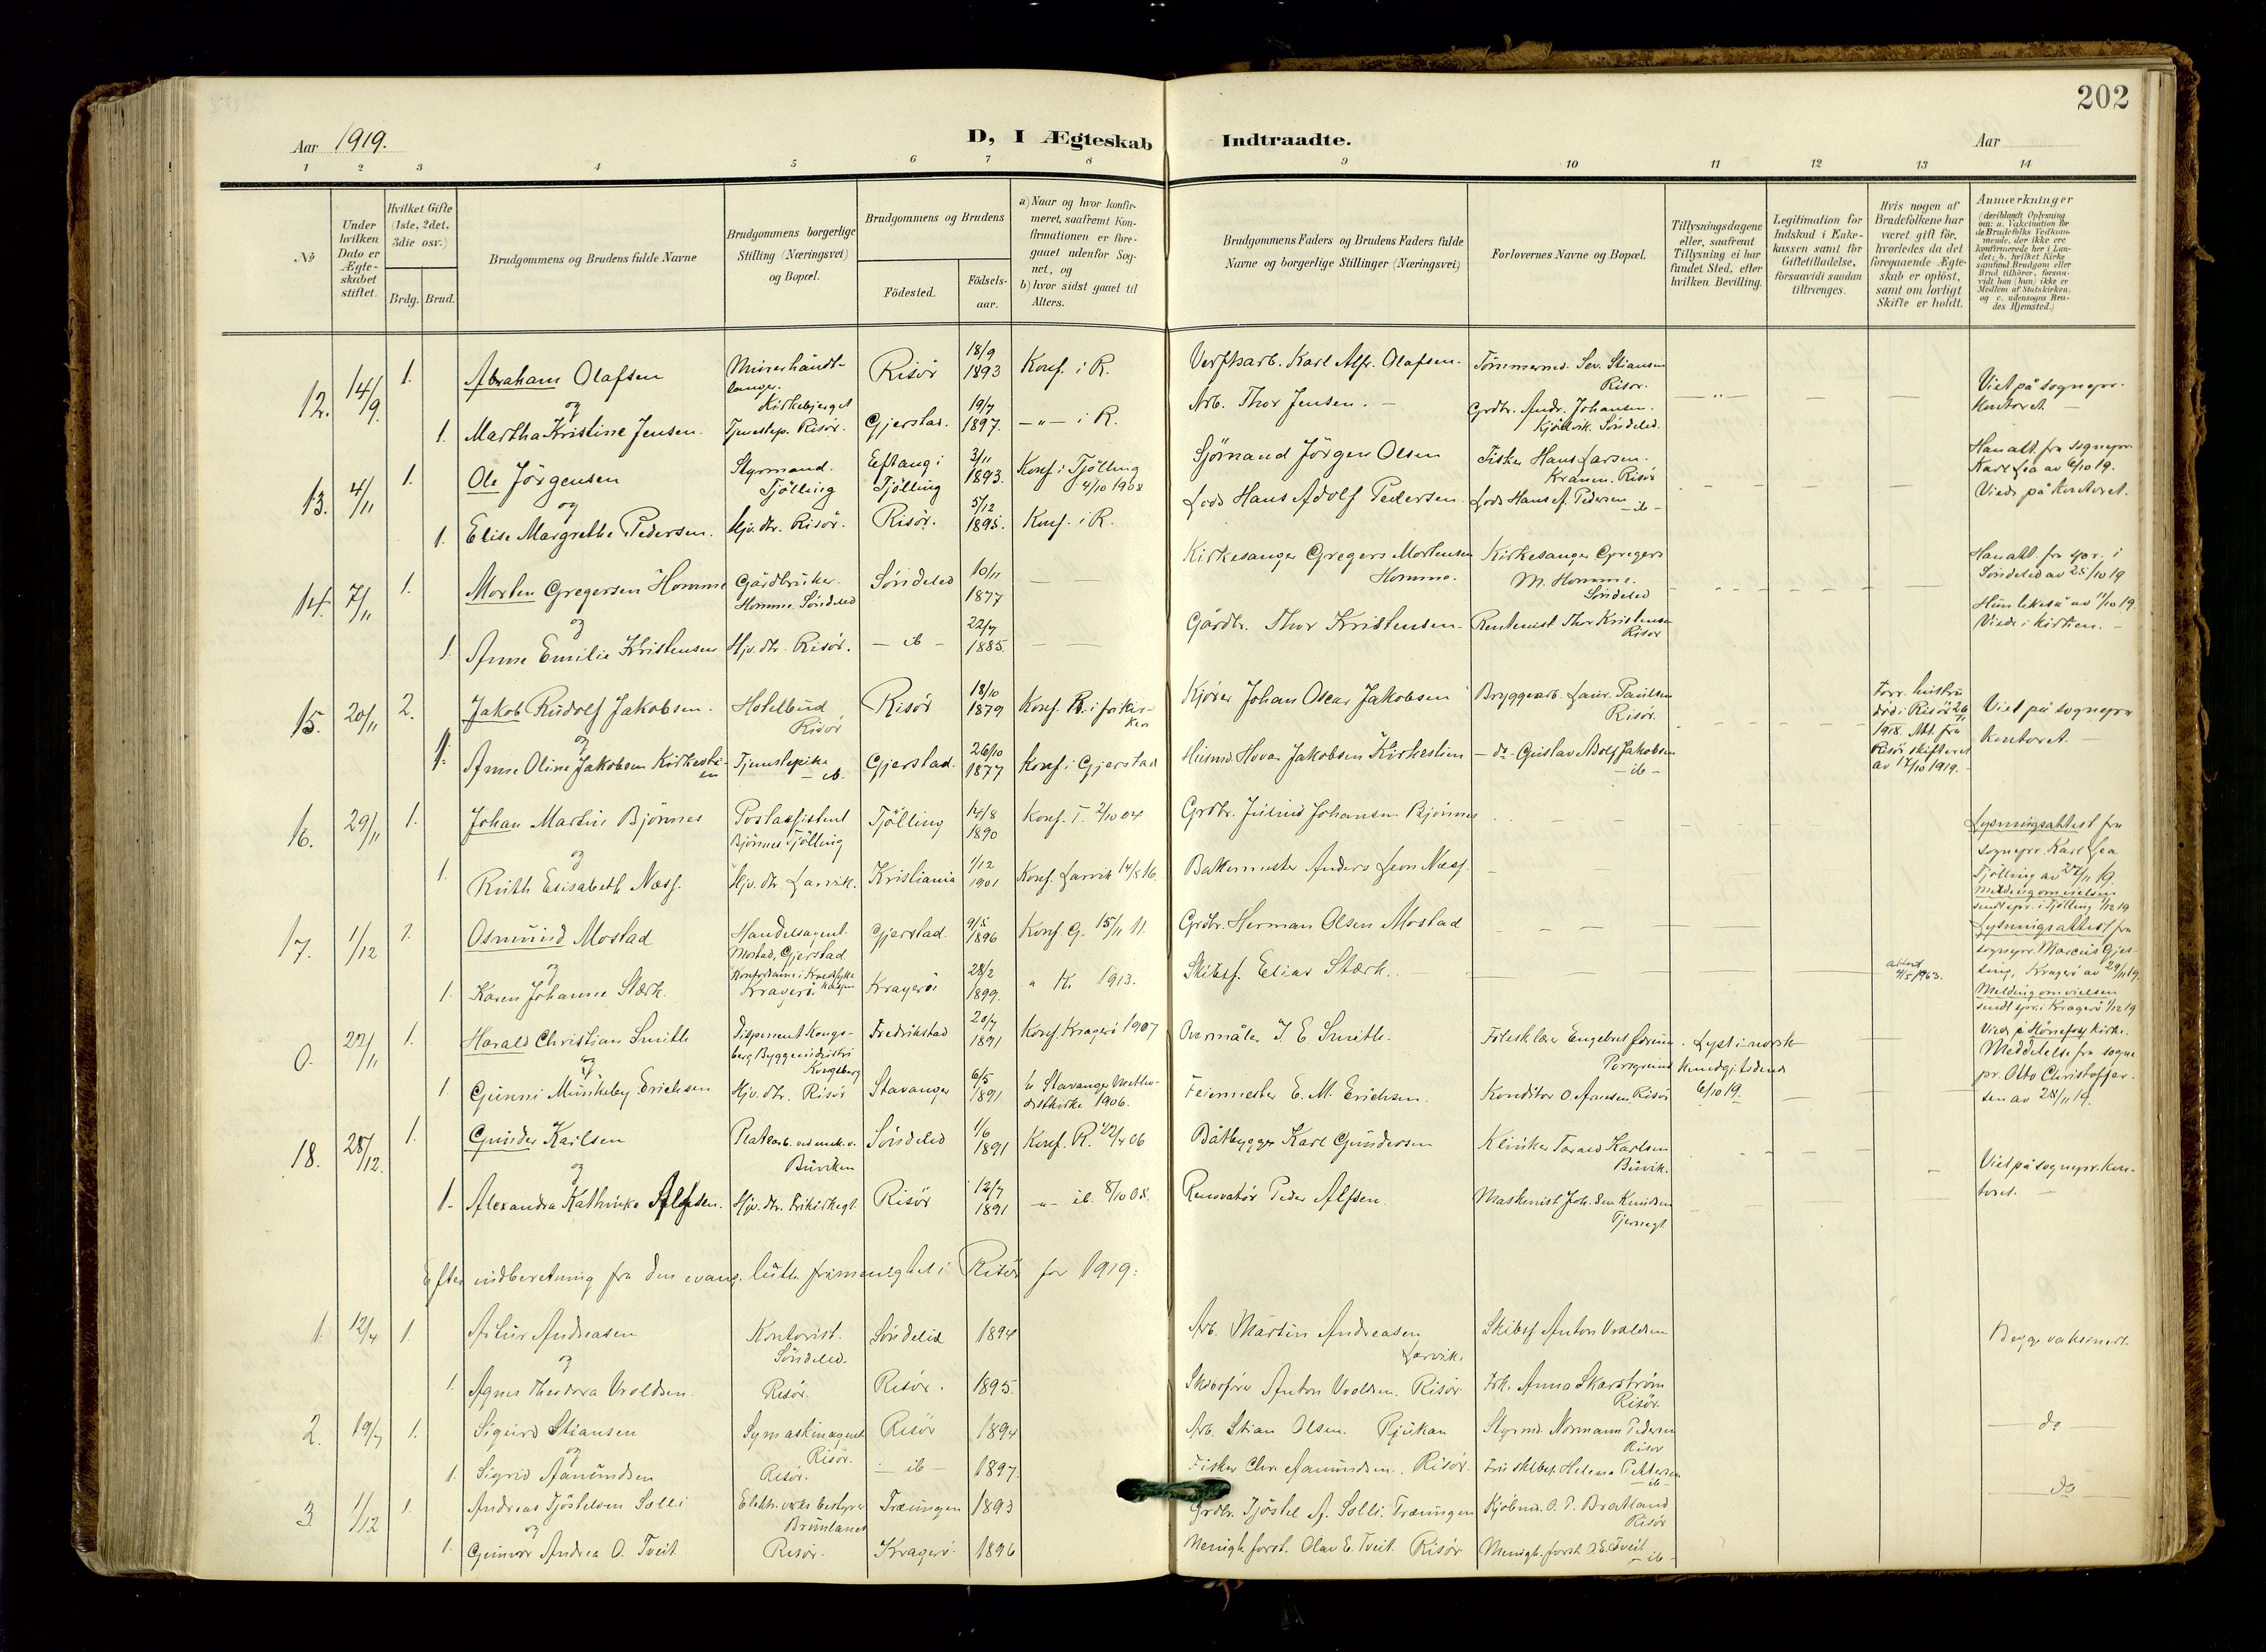 202
Aar 1919.
D, I Ægteskab Indtraadte.
Aar
1 2 3 4 5 6 7 8 9 10 11 12 13 14
No
Under hvilken Dato er Ægteskabet stiftet.
Hvilket Gifte (1ste, 2det, 3die osv.)
Brdg. Brud.
Brudgommens og Brudens fulde Navne
Brudgommens borgerlige Stilling (Næringsvei) og Bopæl.
Brudgommens og Brudens
Födested.
Födselsaar.
a) Naar og hvor konfirmeret, saafremt Konfirmationen er foregaaet udenfor Sognet, og
b) hvor sidst gaaet til Alters.
Brudgommens Faders og Brudens Faders fulde Navne og borgerlige Stillinger (Næringsvei)
Forlovernes Navne og Bopæl.
Tillysningsdagene eller, saafremt Tillysning ei har fundet Sted, efter hvilken Bevilling.
Legitimation for Indskud i Enkekassen samt for Giftetilladelse, forsaavidt saadan tiltrænges.
Hvis nogen af Brudefolkene har været gift för, hvorledes da det foregaaende Ægteskab er oplöst, samt om lovligt Skifte er holdt.
Anmerkninger
(deriblandt Oplysning om: a. Vakcination for de Brudefolks Vedkommende, der ikke ere konfirmerede her i Landet; b. hvilket Kirkesamfund Brudgom eller Brud tilhörer, forsaavidt han (hun) ikke er Medlem af Statskirken. og c. udensogns Brudes Hjemsted.)
12. 14/9 1. Abraham Olafsen Murerhåndtlanger. Kirkebjerget Risör 18/9 1893 Konf. i R. Verftsarb. Karl Alfr. Olafsen. Tømmermd. Sev. Stiansen Risør. Viet på sognepr. kontoret.
og
1. Martha Kristine Jensen. Tjenestep. Risör. Gjerstad. 19/7 1897. —"— i R. Arb. Thor Jensen. Grdbr. Andr. Johansen. Søndeled.
13. 4/11 1. Ole Jörgensen Styrmand. Tjölling Eftang i Tjölling 3/11 1893. Konf. i Tjölling 4/10 1908 Sjömand Jörgen Olsen Fisker Hans Larsen. Kranen. Risör Han att. fra sognepr. Karl Lea av 6/10 19. Viede på kontoret.
og
1. Elise Margrethe Pedersen. Hjv. dtr. Risör. Risör. 5/12 1895. Konf. i R. Lods Hans Adolf Pedersen. Lods Hans A. Pedersen — ib —
14. 7/11 1. Morten Gregersen Homme Gårdbruker. Homme. Söndeled Söndeled 10/11 1877 Kirkesanger Gregers Mortensen Homme. Kirkesanger Gregers M. Homme. Söndeled Han att. fra spr. i Söndeled av 25/10 19
og
1. Anne Emilie Kristensen Hjv. dtr. Risör. — ib — 22/7 1885. Gårdbr. Thor Kristensen Rentenist Thor Kristensen Risør Hun likeså av 11/10 19. Viede i kirken.
15. 20/11 2. Jakob Rudolf Jakobsen. Hotelbud Risör Risör 18/10 1879 Konf. R. i frikirken Kjører Johan Oscar Jakobsen Bryggearb. Laur. Paulsen Risör. Forr. hustru död i Risör 26/7 1918. Att. fra Risör skifteret av 17/10 1919. Viet på sognepr. kontoret.
og
1. Anne Oline Jakobsen Kirkestien Tjenestepike — ib. Gjerstad. 26/10 1877 Konf. i Gjerstad Husmd. Hovar Jakobsen Kirkestien — do — Gustav Adolf Jakobsen — ib —
16. 29/11 1. Johan Martin Bjönnes Postassistent Bjönnes Tjölling Tjölling 14/8 1890 Konf. T. 2/10 04 Grdbr. Julius Johansen Bjönnes Lysningsattest fra sognepr. Karl Lea Tjölling av 27/11 19. Melding om vielsen sendt spr. i Tjölling 1/12 19
og
1. Ruth Elisabeth Næss. Hjv. dtr. Larvik. Kristiania 1/12 1901 Konf. Larvik 14/5 16. Bakermester Anders Leon Næss.
17. 1/12 1. Osmund Mostad Handelsagent. Mostad, Gjerstad Gjerstad. 9/5 1896 Konf. G. 15/11 11. Grdbr. Herman Olsen Mostad Lysningsattest fra sognepr. Marcus Gjessing, Kragerö av 29/11 19. Melding om vielsen sendt spr. i Kragerö 1/12 19
og
1. Karen Johanne Stærk. Kragerö. Kragerö 28/2 1899. " K. 1913. Skibsf. Elias Stærk. attest 4/5 1963.
0. 22/11 1. Harald Christian Smith Disponent Kongsberg Byggeindustri Kongsberg Fredrikstad 20/7 1891 Konf. Kragerö 1907 Overmåler J. E. Smith. Engebret Porsgrund Lyst i norsk kundgj. tidende 6/10 19. Viede i Hönefoss kirke. Meddelelse fra sognepr. Otto Christoffersen av 28/11 19.
og
1. Gunni Munkeby Erichsen Hjv. dtr. Risör Stavanger 6/5 1891 Stavanger Methodistkirke 1906. Feiermester E. M. Erichsen. Konditor O. Arnesen. Risör
18. 28/12. 1. Gunder Karlsen Buviken Söndeled 1/6 1891 Konf. R. 06 Båtbygger Karl Gundersen Klinker Torald Karlsen Buvik. Viet på sognepr. kontoret.
og
1. Alexandra Kathinka Alfsen. Hjv. dtr. Frikirkegt. Risör 12/7 1891 —"— ib. 8/10 05. Renovatör Peder Alfsen Maskinist Joh. Sev. Knudsen Tjernegt.
Efter indberetning fra den evang. luth. frimenighet i Risör for 1919:
1. 12/4 1. Artur Andreasen Kontorist. Söndeled. Söndeled 1894 Arb. Martin Andreasen Larvik. Skibsf. Anton Vroldsen Begge vaksinert.
og
1. Agnes Theodora Vroldsen. Risör. Risör. 1895. Skibsfører Anton Vroldsen. Risör Frk. Anna Skarström Risör.
2. 19/7 1. Sigurd Stiansen Symaskinagent Risör. Risör 1894 Arb. Stian Olsen. Rjukan Styrmd. Normann Pedersen Risör — do
og
1. Sigrid Aanundsen Risör. — ib — 1897. Fisker Chr. Aanundsen. Risör. Fru skibsf. Helene Pettersen — ib —
3. 1/12 1. Andreas Tjöstelsen Solli Elektr. verks bestyrer Brunlanes Træungen 1893 Grdbr. Tjöstel A. Solli. Træungen Kjöbmd. O. P. Bratland Risör — do
og
1. Gunvor Andrea O. Tveit Risör. Kragerö. 1896 Menigh. forst. Olav E. Tveit. Risör Menigh. forst. O. E. Tveit — ib —